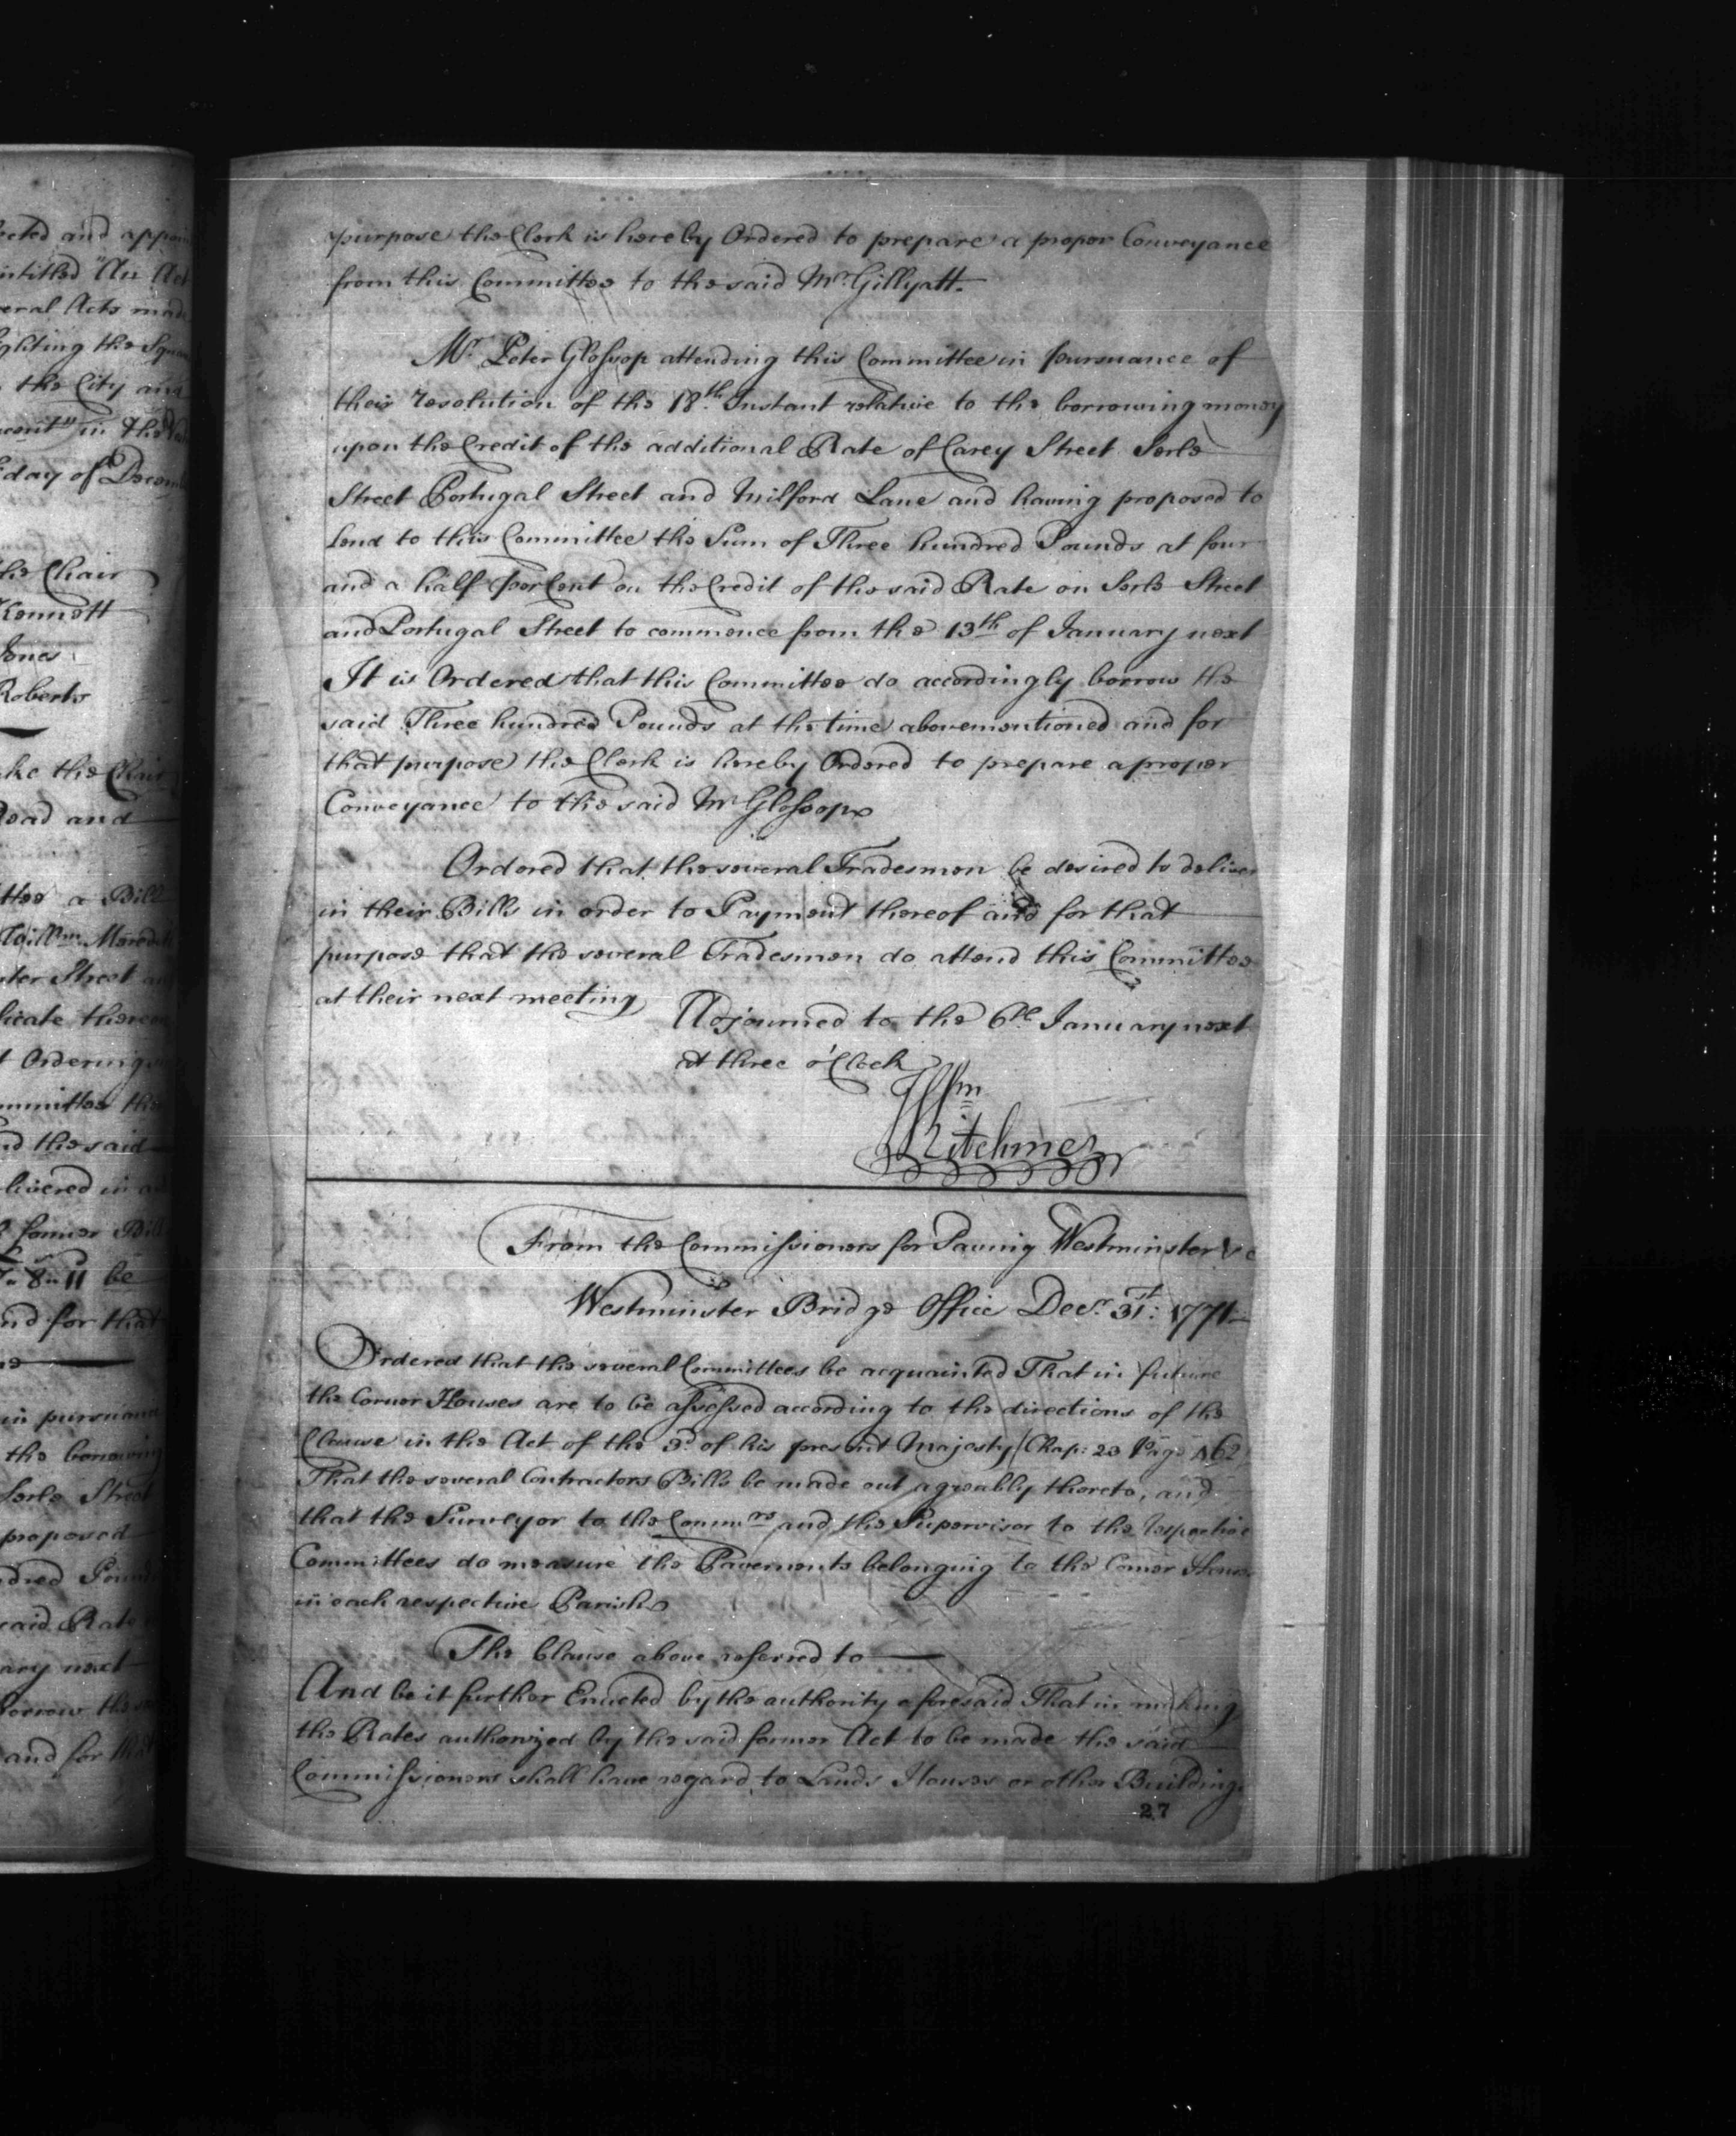 ected and appoin
intitled "An Act
veral Acts made
ighting the Squa
the City and
cont" in the
day of Decem
the Chair
Kennett
Jones
Roberts
ake the Chair
Read and
ttee a Bill
Willm. Meredith
ter Street an
licate thereon
t Ordering
mmittee the
nd the said
livered in a
former Bill
8 " 11 be
nd for that
in pursuance
the borrowing
Serle Street
proposed
dred Pound
said Rate
ary next
borrow the
and for that
purpose the Clerk is hereby Ordered to prepare a proper Conveyance
from this Committee to the said Mr. Gillyatt.
Mr. Peter Glossop attending this Committee in pursuance of
their resolution of the 18th. Instant relative to the borrowing money
upon the Credit of the additional Rate of Carey Street Serle
Street Portugal Street and Milford Lane and having proposed to
lend to this Committee the Sum of Three hundred Pounds at four
and a half per Cent on the Credit of the said Rate on Serle Street
and Portugal Street to commence from the 13th of January next
It is Ordered that this Committee do accordingly borrow the
said Three hundred Pounds at the time abovementioned and for
that purpose the Clerk is hereby Ordered to prepare a proper
Conveyance to the said Mr Glossop
Ordered that the several Tradesmen be desired to deliver
in their Bills in order to Payment thereof and for that
purpose that the several Tradesmen do attend this Committee
at their next meeting
Adjourned to the 6th January next
at three o'Clock
Wm
Kitchiner
From the Commissioners for Paving Westminster &c
Westminster Bridge Office Decr. 31st: 1771
Ordered that the several Committees be acquainted That in future
the Corner Houses are to be assessed according to the directions of the
Clause in the Act of the 3d. of his present Majesty (Chap: 23 Page 462
That the several Contractors Bills be made out agreably thereto, and
that the Surveyor to the Commrs and the Supervisor to the respective
Committees do measure the Pavements belonging to the Corner Houses
in each respective Parish
The Clause above referred to
And be it further Enacted by the authority aforesaid That in making
the Rates authorized by the said former Act to be made the said
Commissioners shall have regard to Lands Houses or other Buildings
27